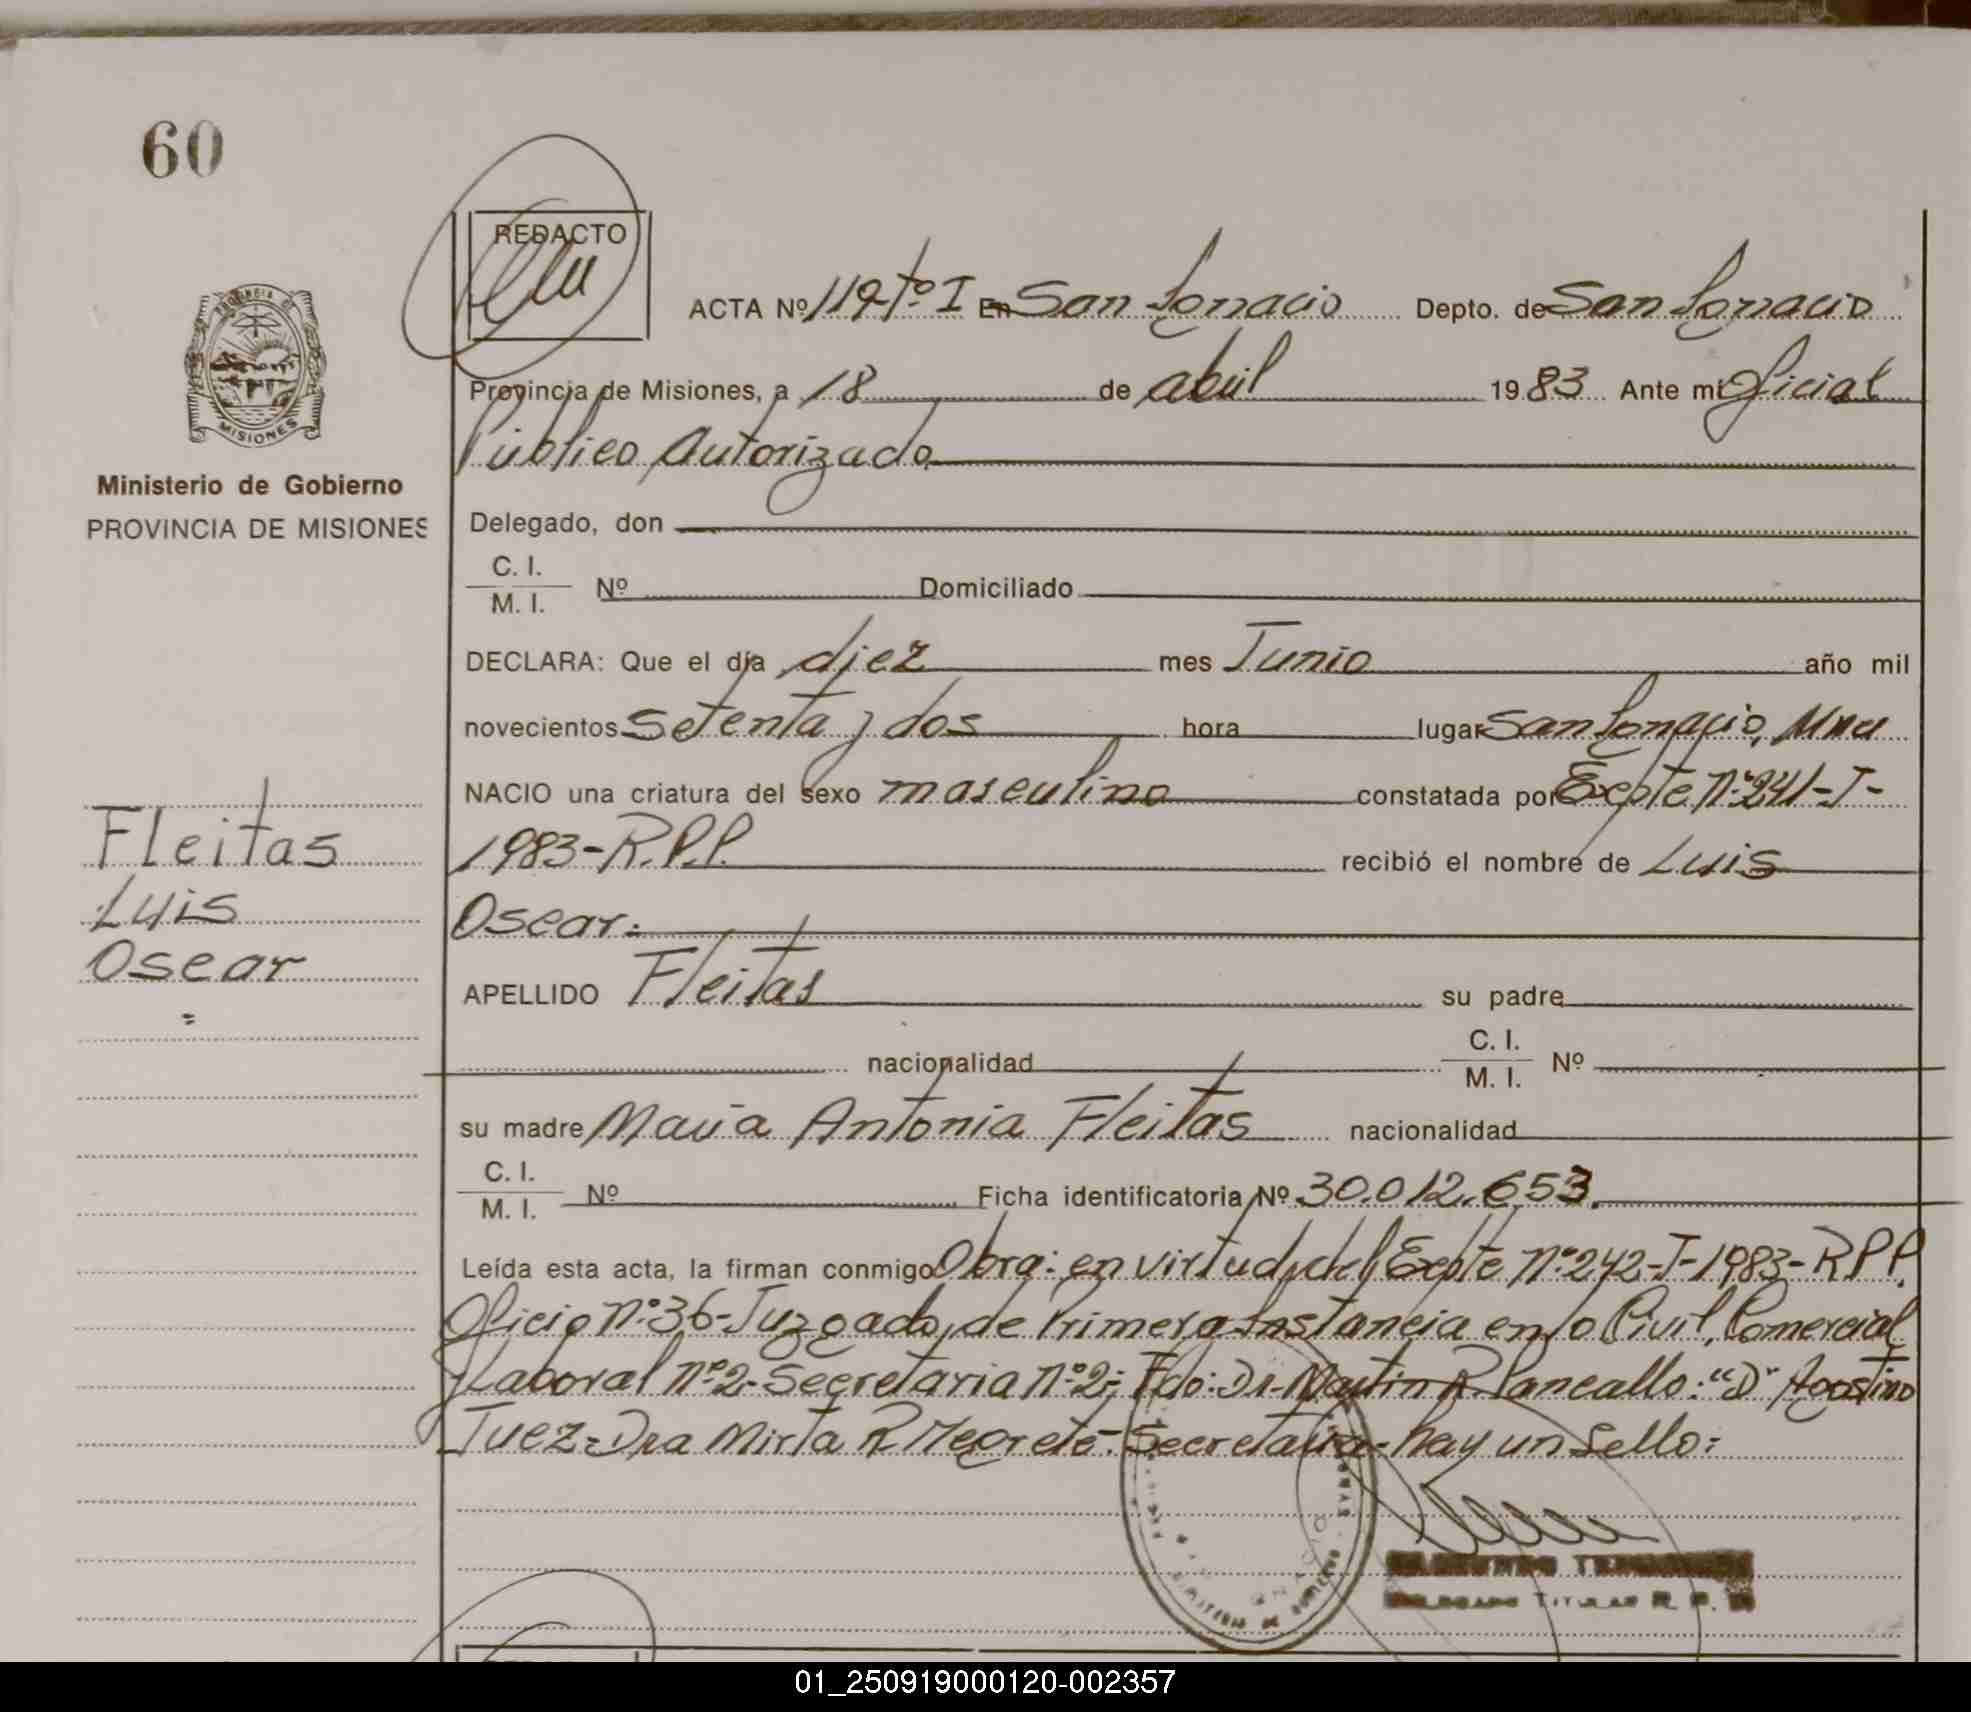 60
REDACTO
ACTA Nº 119 tº I En San Ignacio Depto. de San Ignacio
Provincia de Misiones, a 18 de abril 1983 Ante mi Oficial
Público Autorizado
Delegado, don
C. I.
M. I. Nº Domiciliado
MISIONES
Ministerio de Gobierno
PROVINCIA DE MISIONES
DECLARA: Que el día diez mes Junio año mil
novecientos setenta y dos hora lugar San Ignacio, Mnes
NACIO una criatura del sexo masculino constatada por Expte Nº 241-J-
1983-R.P.P. recibió el nombre de Luis
Oscar.
Fleitas
Luis
Oscar
APELLIDO Fleitas su padre
nacionalidad C. I.
M. I. Nº
su madre María Antonia Fleitas nacionalidad
C. I.
M. I. Nº Ficha identificatoria Nº 30.012.653.
Leída esta acta, la firman conmigo Obra: en virtud del Expte Nº 242-J-1983-R P P.
Oficio Nº 36-Juzgado de Primera Instancia en lo Civil, Comercial
y Laboral Nº 2-Secretaria Nº 2; Fdo: Dr. Martin R. "D" Agostino
Juez-Dra Mirta R Negrete. Secretaria-hay un Sello:
TITULAR R. P.
01_250919000120-002357